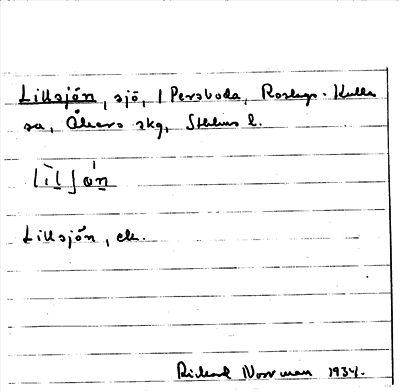 Lillsjön, sjö, i Persboda, Roslags-Kulla
sn, Åkers skg, Sthlms l.
Lillsjön, ek.
Rickard Norrman 1934.